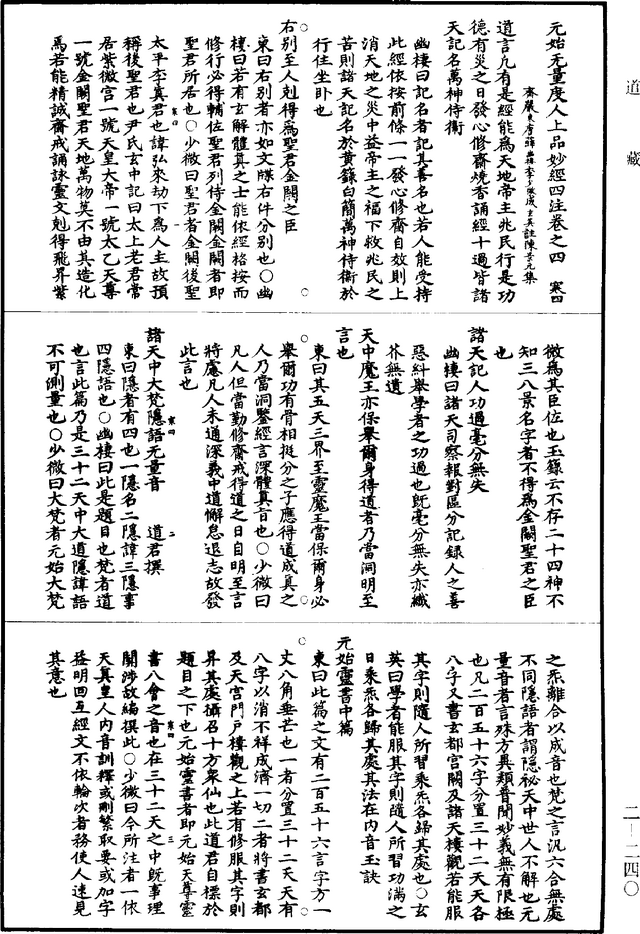 道藏
元始无量度人上品妙經四注卷之四　寒四
齊嚴東唐薛幽棲李少微成玄英註陳景元集
道言凡有是經能為天地帝主兆民行是功
德有災之日發心修齋燒香誦經十過皆諸
天記名萬神侍衛
幽棲曰記名者記其善名也若人能受持
此經依按前條一一發心修齋自效則上
消天地之災中益帝主之福下救兆民之
苦則諸天記名於黃籙白簡萬神侍衛於
行住坐卧也
右別至人剋得為聖君金闕之臣
東曰右別者亦如文牒右件分別也○幽
棲曰若有玄解體真之士能依經格按而
修行必得輔佐聖君列侍金闕金闕者即
聖君所居也○少微曰聖君者金闕後聖
寒四　一
太平李真君也諱弘來劫下為人主故預
稱後聖君也尹氏玄中記曰太上老君常
居紫微宫一號天皇大帝一號太乙天尊
一號金闕聖君天地萬物莫不由其造化
焉若能精誠齋戒誦詠靈文剋得飛昇紫
微為其臣佐也玉籙云不存二十四神不
知三八景名字者不得為金闕聖君之臣
也
諸天記人功過毫分無失
幽棲曰諸天司察報對區分記録人之善
惡糾舉學者之功過也旣毫分無失亦纖
芥無遺
天中魔王亦保舉爾身得道者乃當洞明至
言也
東曰其五天三界至靈魔王當保爾身必
舉爾功有骨相挺分之子應得道成真之
人乃當洞鑒經言深體真旨也○少微曰
凡人但當勤修齋戒得道之日自明至言
將處凡人未通深義中道懈怠退志故發
此言也
諸天中大梵隱語无量音　道君撰
寒四　二
東曰隱者有四也一隱名二隱諱三隱事
四隱語也○幽棲曰此是題目也梵者道
也言此篇乃是三十二天中大道隱諱語
不可測量也○少微曰大梵者元始大梵
之炁離合以成音也梵之言汎六合無處
不同隱語者謂隱祕天中世人不解也元
量音者言殊方異類普聞妙義無有限極
也凡二百五十六字分置三十二天天各
八字又書玄都宮闕及諸天樓觀若能服
其字則隨人所習乘炁各歸其處也○玄
英曰學者能服其字則隨人所習功滿之
日乘炁各歸其處其法在內音玉訣
元始靈書中篇
東曰此篇之文有二百五十六言字方一
丈八角垂芒也一者分置三十二天天有
八字以消不祥成濟一切二者將書玄都
及天宫門戶樓觀之上若有修服其字則
昇其處攝召十方衆仙也此道君自標於
題目之下也元始靈書者即元始天尊靈
寒四　三
書八會之音也在三十二天之中旣事理
關涉故編撰此○少微曰今所注者一依
天真皇人内音訓釋或刪繁取要或加字
益明回互經文不依輪次者務使人速見
其意也
二—二四〇